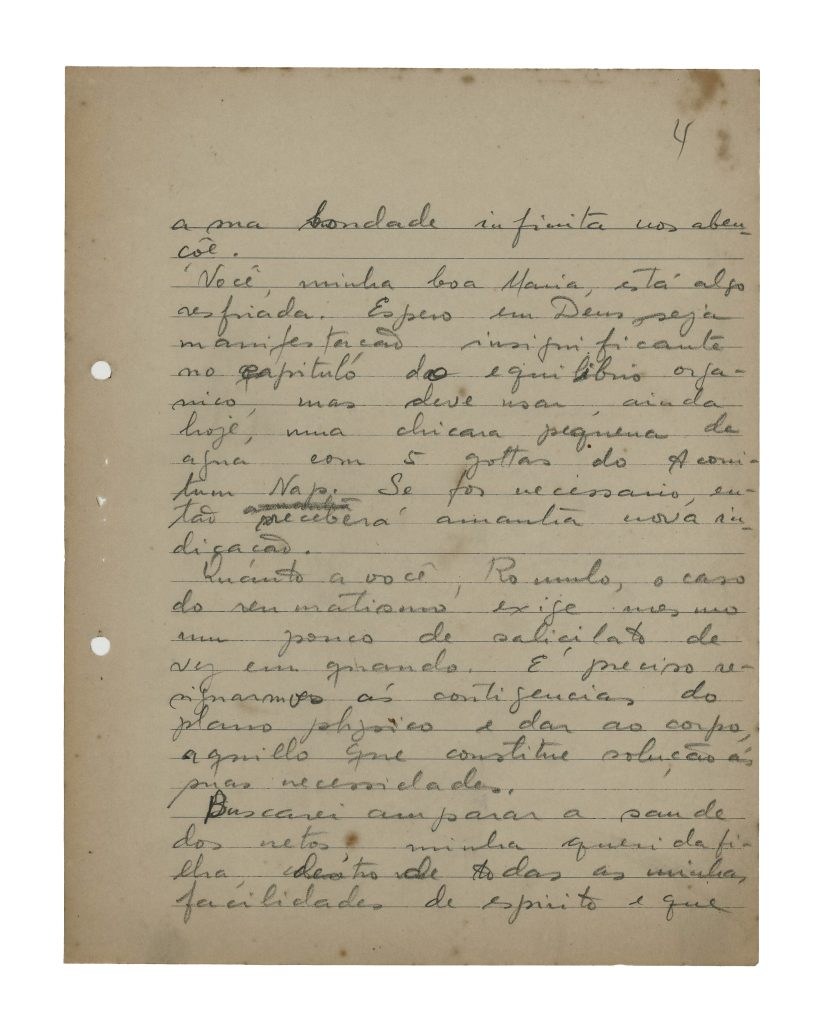 4
a sua bondade infinita nos aben-
çôe.
Você, minha boa Maria, está algo
resfriada. Espero em Deus seja
manifestacão insignificante
no capitulo do equilibrio orga-
nico, mas deve usar, ainda
hoje, uma chicara pequena de
agua com 5 gottas do Aconi-
tum Nap. Se fôr necessario, en-
tão receberá amanhã nova in-
dicacão.
Quanto a você, Romulo, o caso
do reumatismo exige mesmo
um pouco de salicilato de
vez em quando. É preciso re-
signarmos ás contigencias do
plano physico e dar ao corpo,
aquillo que constitue solução ás
suas necessidades.
Buscarei amparar a saude
dos netos, minha querida fi-
lha, dentro de todas as minhas
facilidades de espirito e que